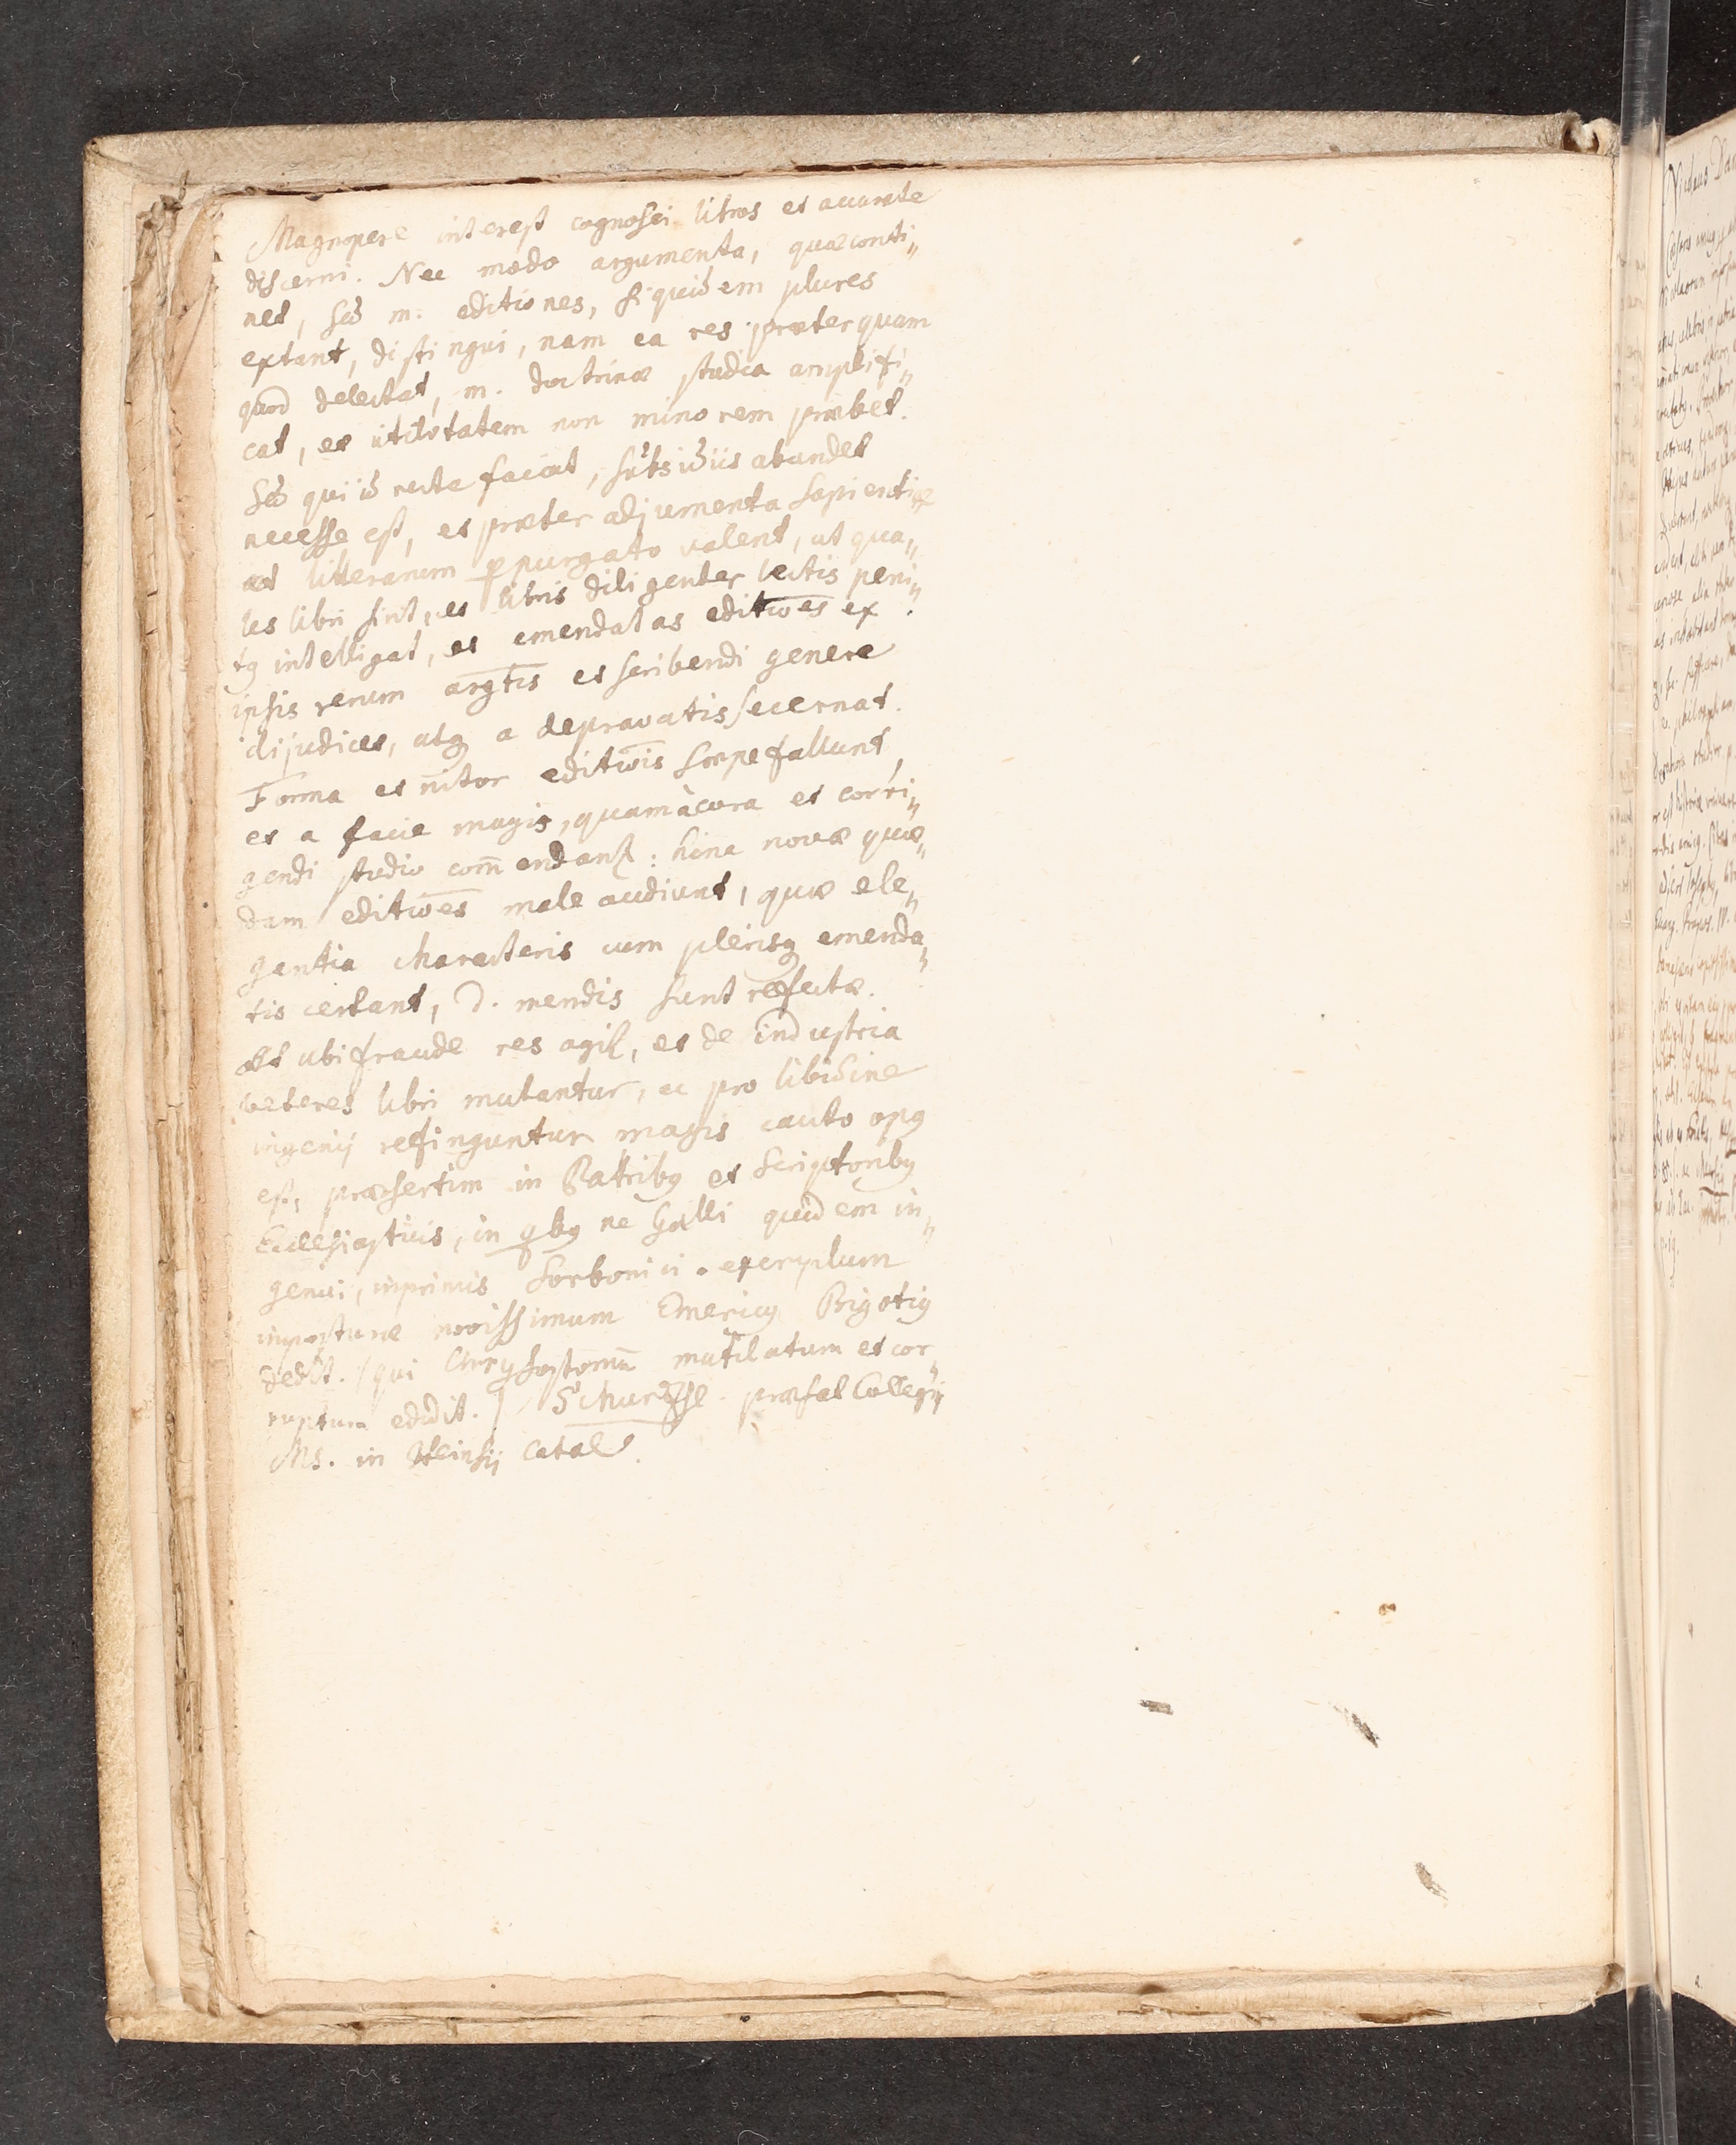 Magnopere interest cognosci libros et accurate
discerni. Nec modo argumenta, quæ conti„
net, sed m. editiones, siquidem plures
extant, distingui, nam ea res præterquam
quod delectat, m. doctrinæ studia amplifi„
cat, et utilitatem non minorem præbet.
Sed qui id recte faciat, subsidiis abundet
necesse est, et præter adjumenta sapientiæ
et litterarum purgato valent, ut qua„
les libri sint, et libris diligenter lectis peni„
tq intelligat, et emendatas editiōes ex
ipsis rerum argtis et scribendi genere
dijudicet, atq a depravatis secernat.
Forma et nitor editiōis sæpe fallunt,
et a facie magis, quam à cura et corri„
gendi studio com̄endant: hinc novæ quæ„
dam editiōes male audiunt, quæ ele„
gantia characteris cum plerisq emenda„
tis certant, d. mendis sunt refectæ.
At ubi fraude res agit, et de industria
veteres libri mutantur, ac pro libidine
ingenij refinguntur magis cauto opq
est, præsertim in Patribq et Scriptoribq
Ecclesiasticis, in qbq ne Galli quidem in„
genui, inprimis Sorbonici. exemplum
imposturæ novissimum Emericq Bigotiq
dedit. (qui Chrysostomū mutilatum et cor„
ruptum edidit.) Schurzfl. præfat Collegij
Ms. in Heinsij Catal.